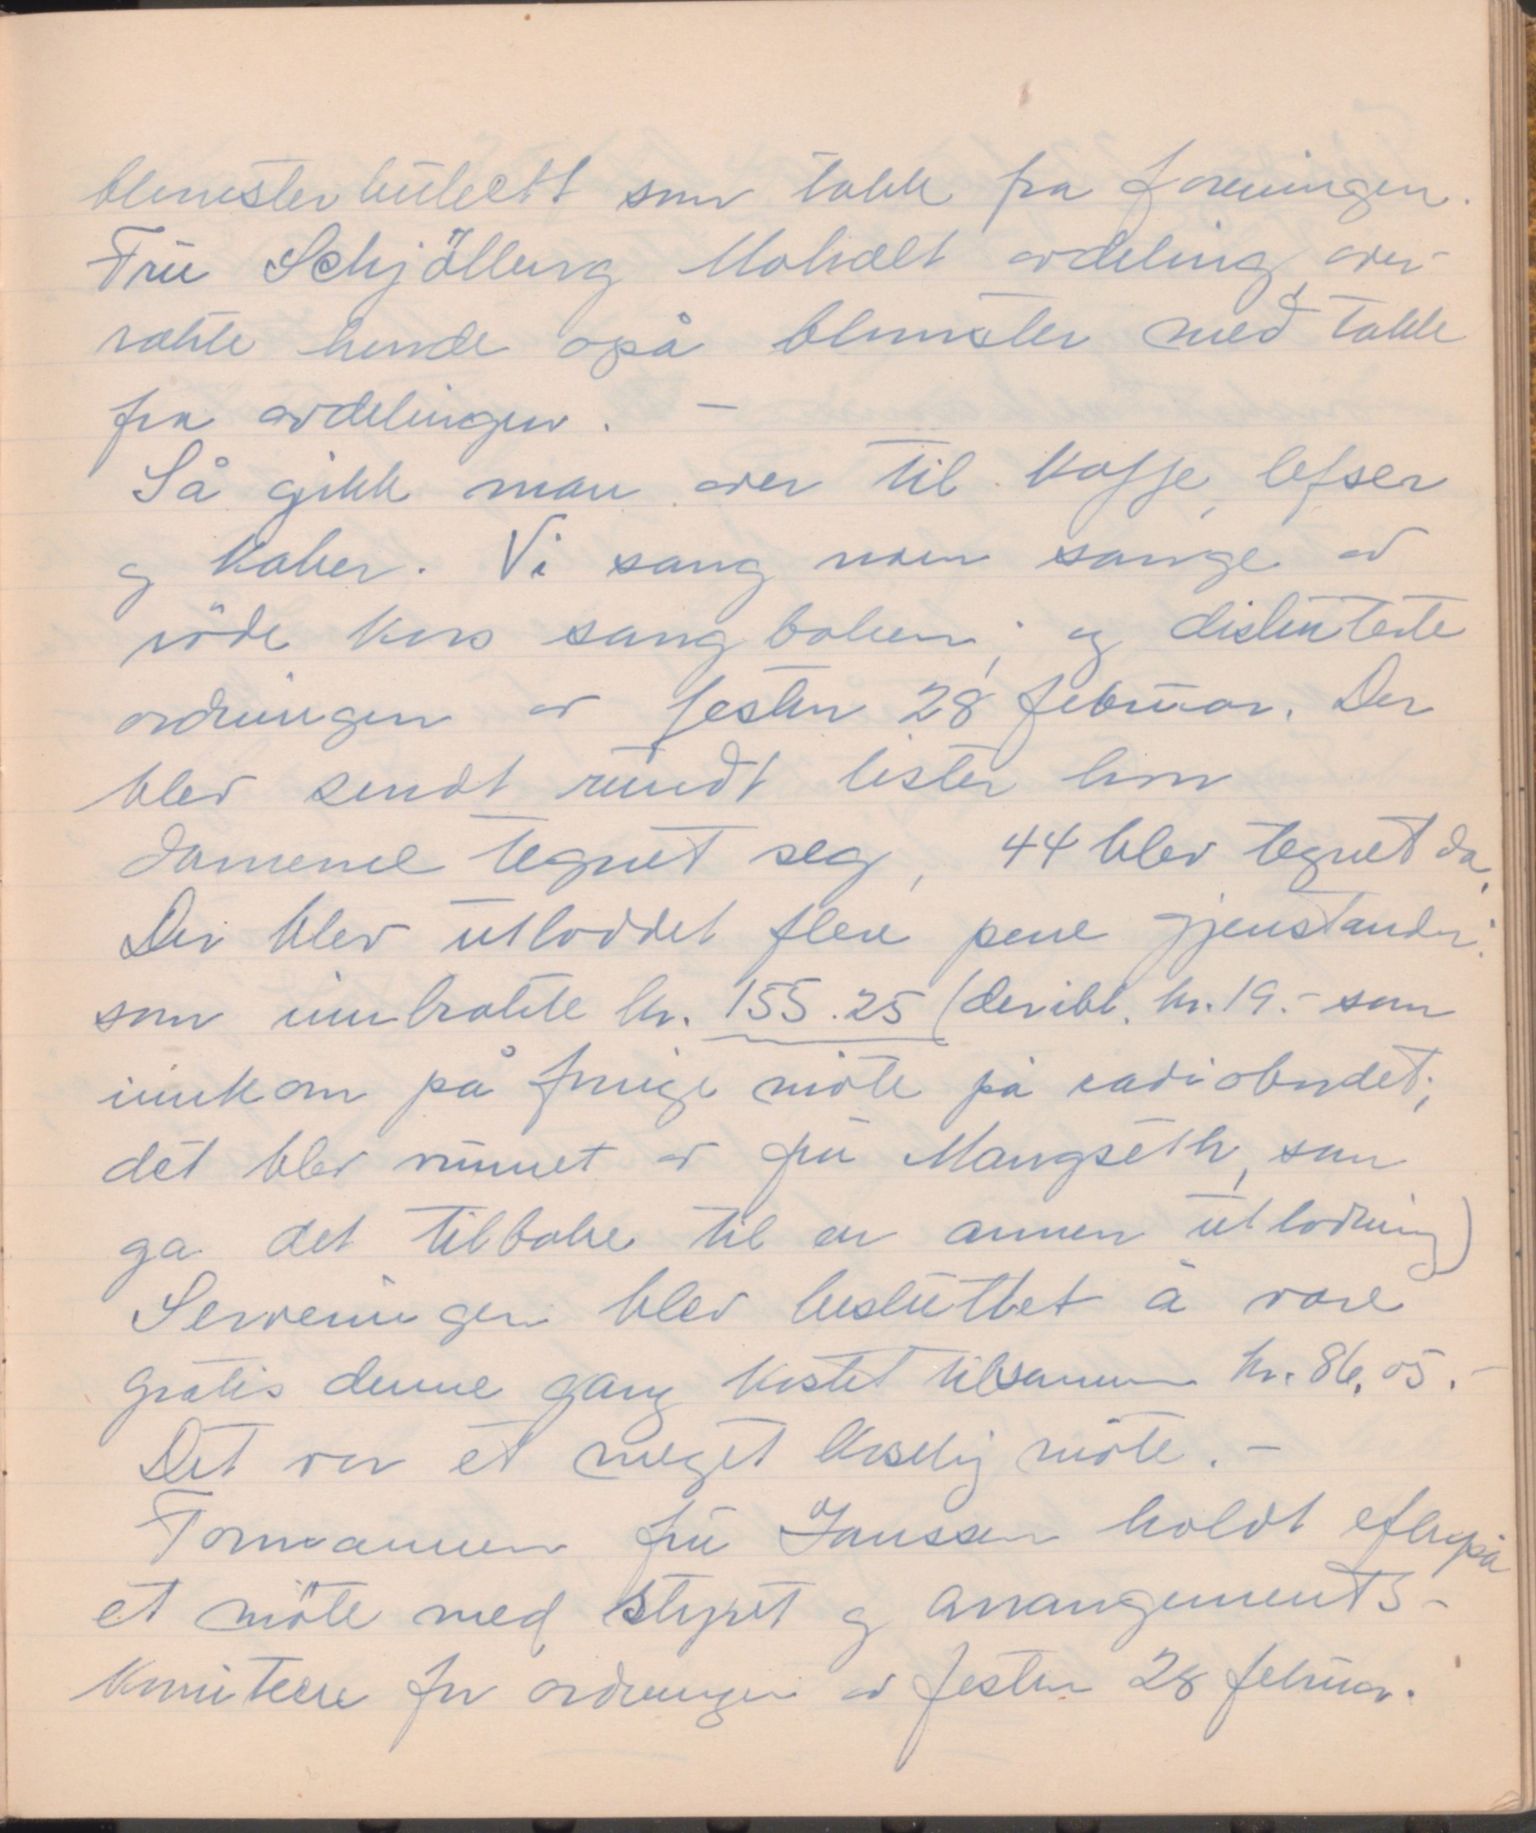 blomsterbukett som takk fra foreningen.
Frü Schjölberg Moholt avdeling, over-
rakte hende også blomster med takk
fra avdelingen. -
Så gikk man over til kaffe, lefser
og kaker. Vi sang noen sange av
röde kors sangboken; og diskuterte
ordningen av festen 28 februar. Der
blev sendt rundt lister hvor
damene tegnet seg, 44 blev tegnet da.
Der blev utloddet flere pene gjenstander:
som innbrakte kr. 155.25 (deribl. kr. 19.- som
innkom på forrige möte på radiobordet;
det blev vunnet av fru Mangseth, som
ga det tilbake til en annen utlodning)
Serveringen blev besluttet å være
gratis denne gang kostet tilsammen kr. 86,05.-
Det var et meget koselig möte. -
Formannen fru Janssen holdt efterpå
et möte med styret og arrangements-
komiteere for ordningen av festen 28 februar.